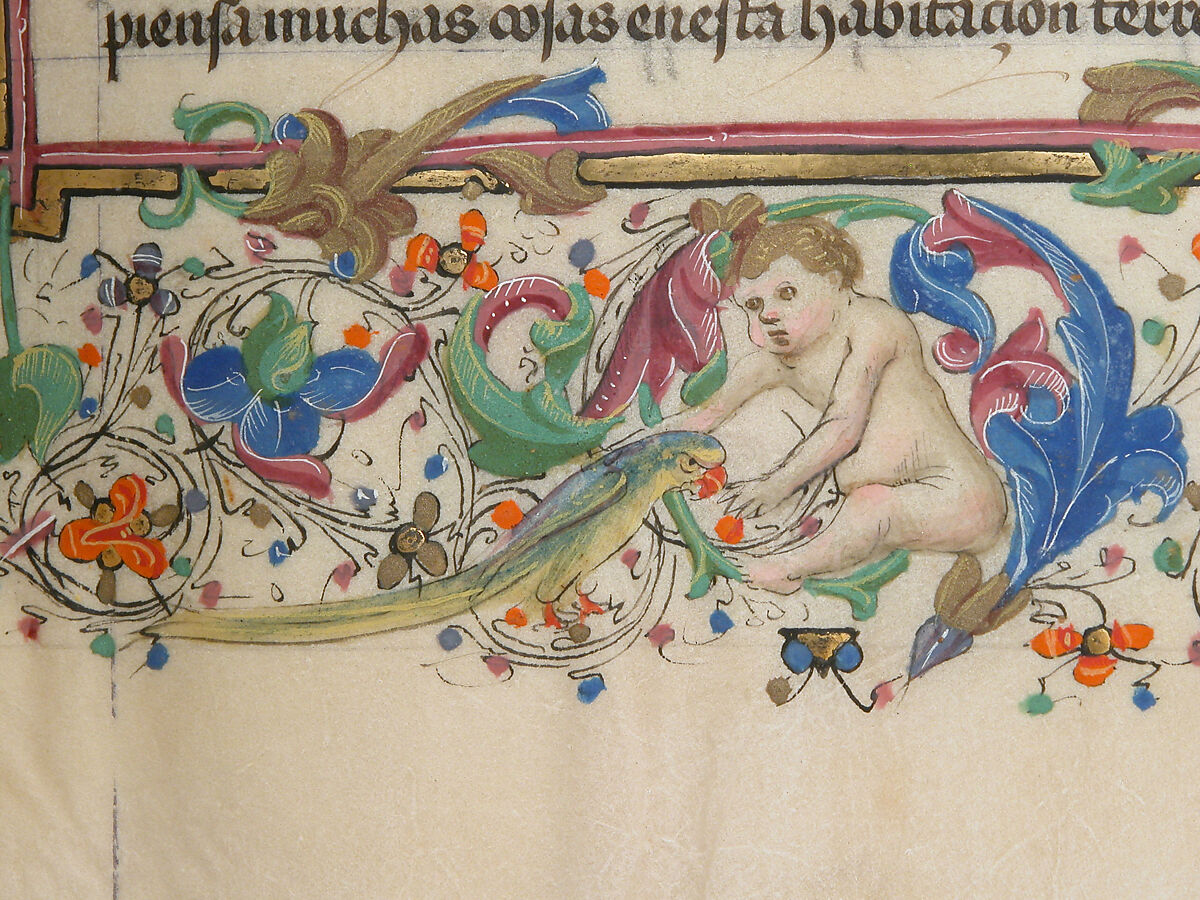 piensa muchas cosas enesta habitacion terre